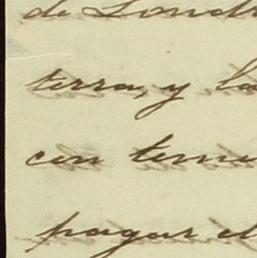 de Londr
terra, y la
con temo
pagar el